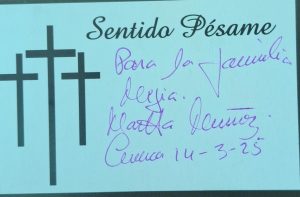 Sentido Pésame
Para la familia
Mejia.
Martha Muñoz.
14-3-25